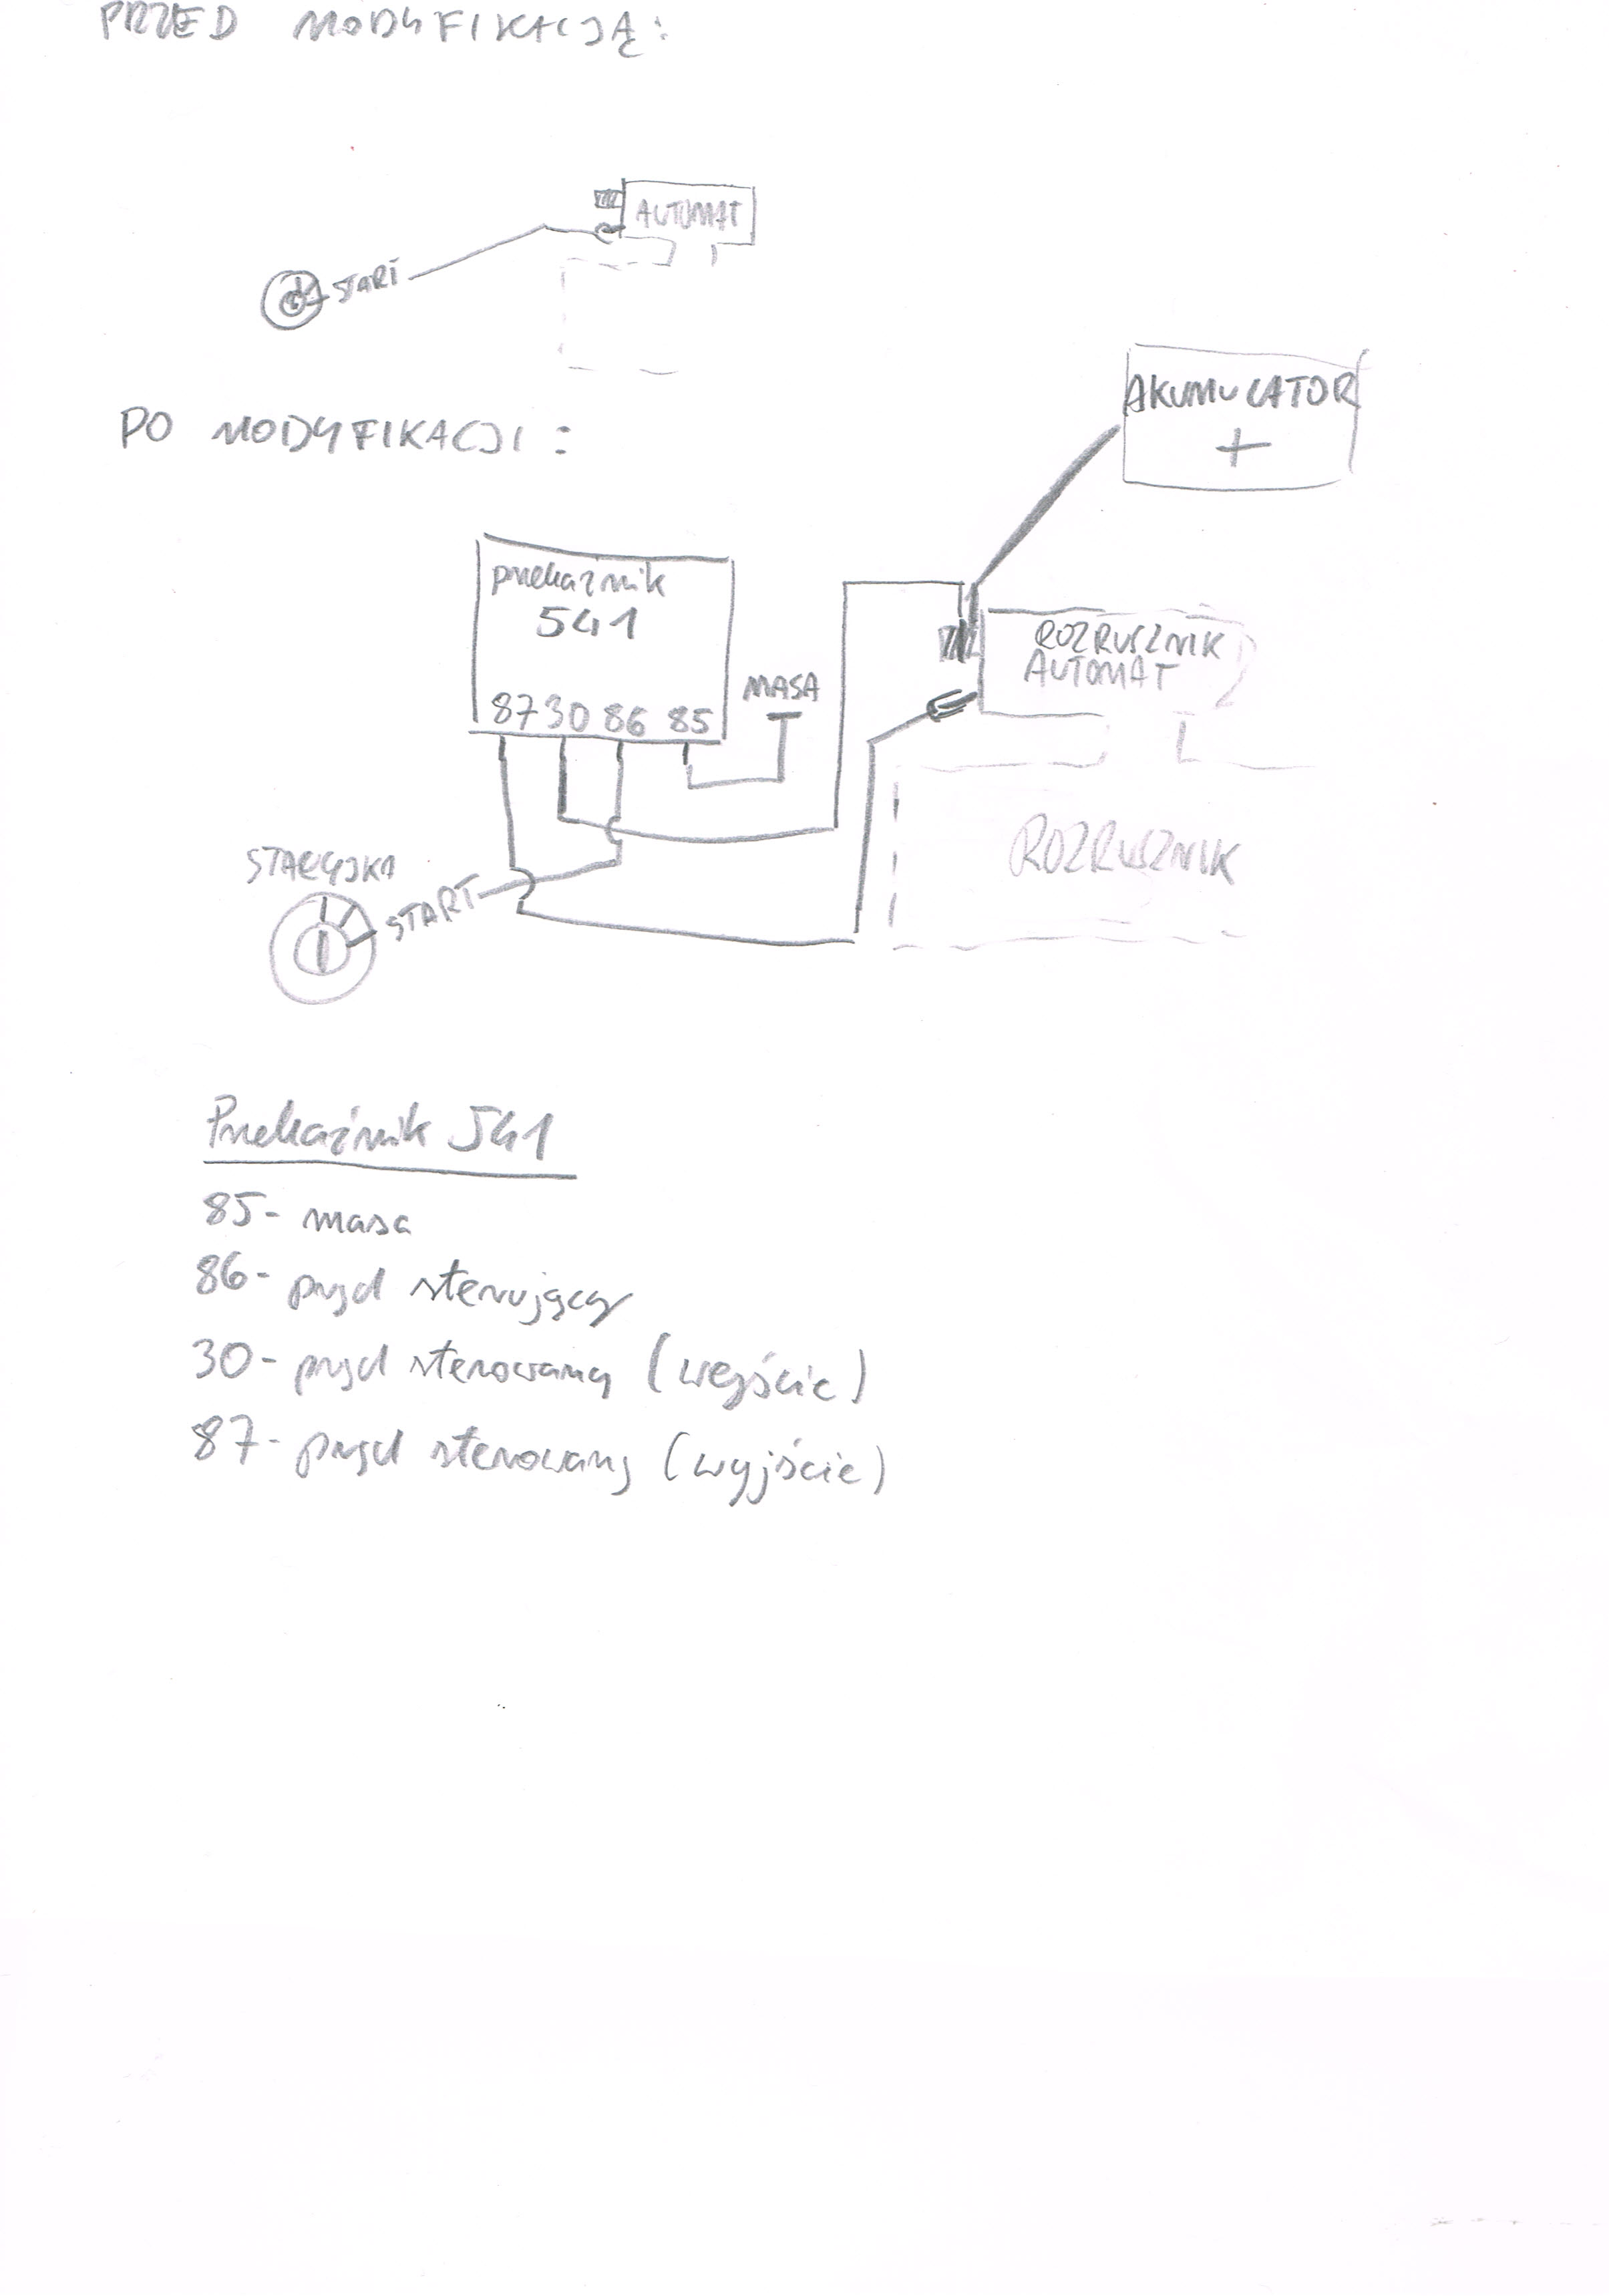 PRZED MODYFIKACJĄ:
AUTOMAT
START
PO MODYFIKACJI:
AKUMULATOR
+
przekaźnik
541
87 30 86 85
MASA
ROZRUSZNIK
AUTOMAT
ROZRUSZNIK
STACYJKA
START
Przekaźnik 541
85- masa
86- prąd sterujący
30- prąd sterowany (wejście)
87- prąd sterowany (wyjście)